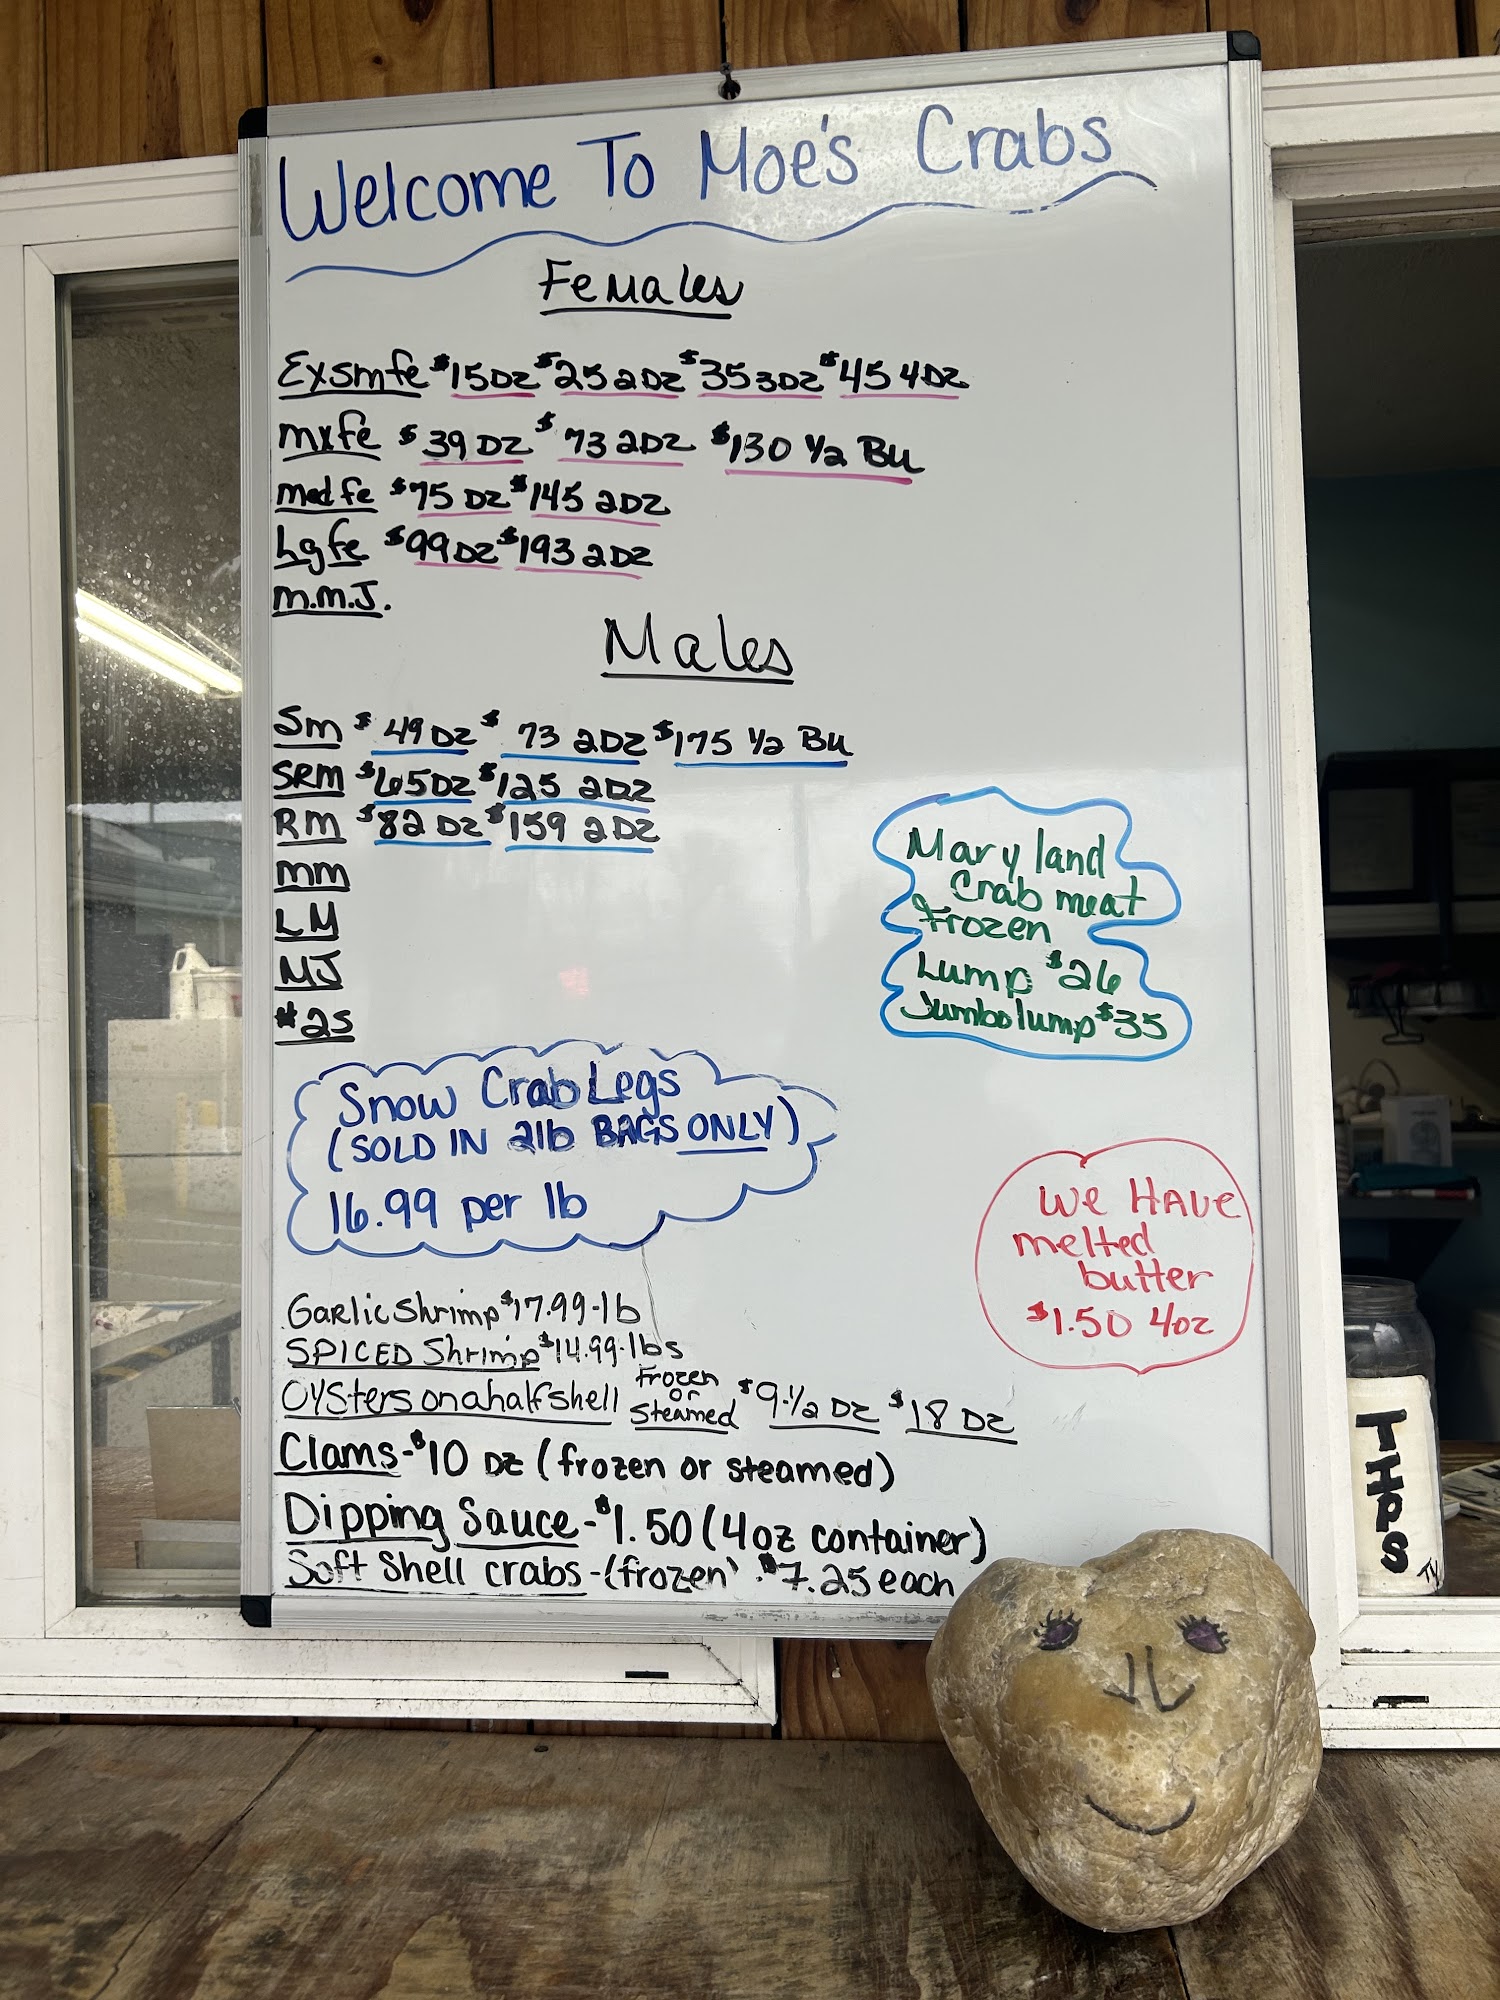 Welcome To Moe's Crabs
Females
Exsmfe $15 DZ $25 2DZ $35 3DZ $45 4DZ
mxfe $39 DZ $73 2DZ $130 1/2 Bu
med fe $75 DZ $145 2DZ
Lgfe $99 DZ $193 2DZ
m.m.J.
Males
Sm $49 DZ $73 2DZ $175 1/2 Bu
SRM $65 DZ $125 2DZ
RM $82 DZ $159 2DZ
mm
LM
MJ
#2s
Maryland
Crab meat
frozen
Lump $26
Jumbo lump $35
Snow Crab Legs
(SOLD IN 2lb BAGS ONLY)
16.99 per lb
We HAVe
melted
butter
$1.50 4oz
Garlic Shrimp $17.99-lb
SPICED Shrimp $14.99-lbs
OYSters on a half shell Frozen or Steamed $9-1/2 DZ $18 DZ
Clams-$10 DZ (frozen or steamed)
Dipping Sauce-$1.50 (4oz container)
Soft Shell crabs-(frozen) $7.25 each
TIPS